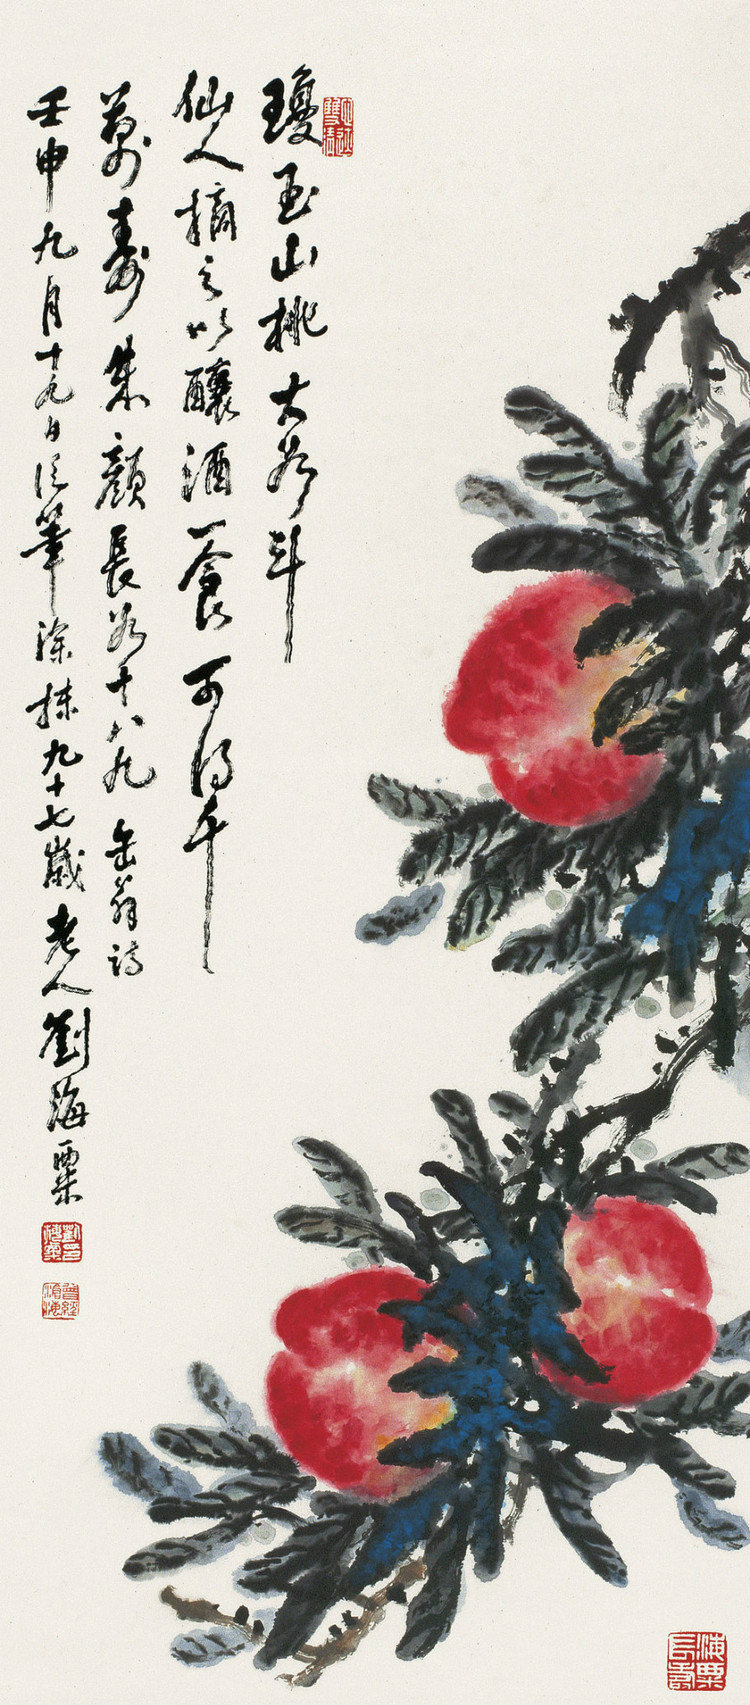 瓊玉山桃大如斗
仙人摘之以釀酒一食可得千
萬壽朱顏長如十八九 缶翁詩
壬申九月十九日泛筆塗抹九十七歲老人劉海粟